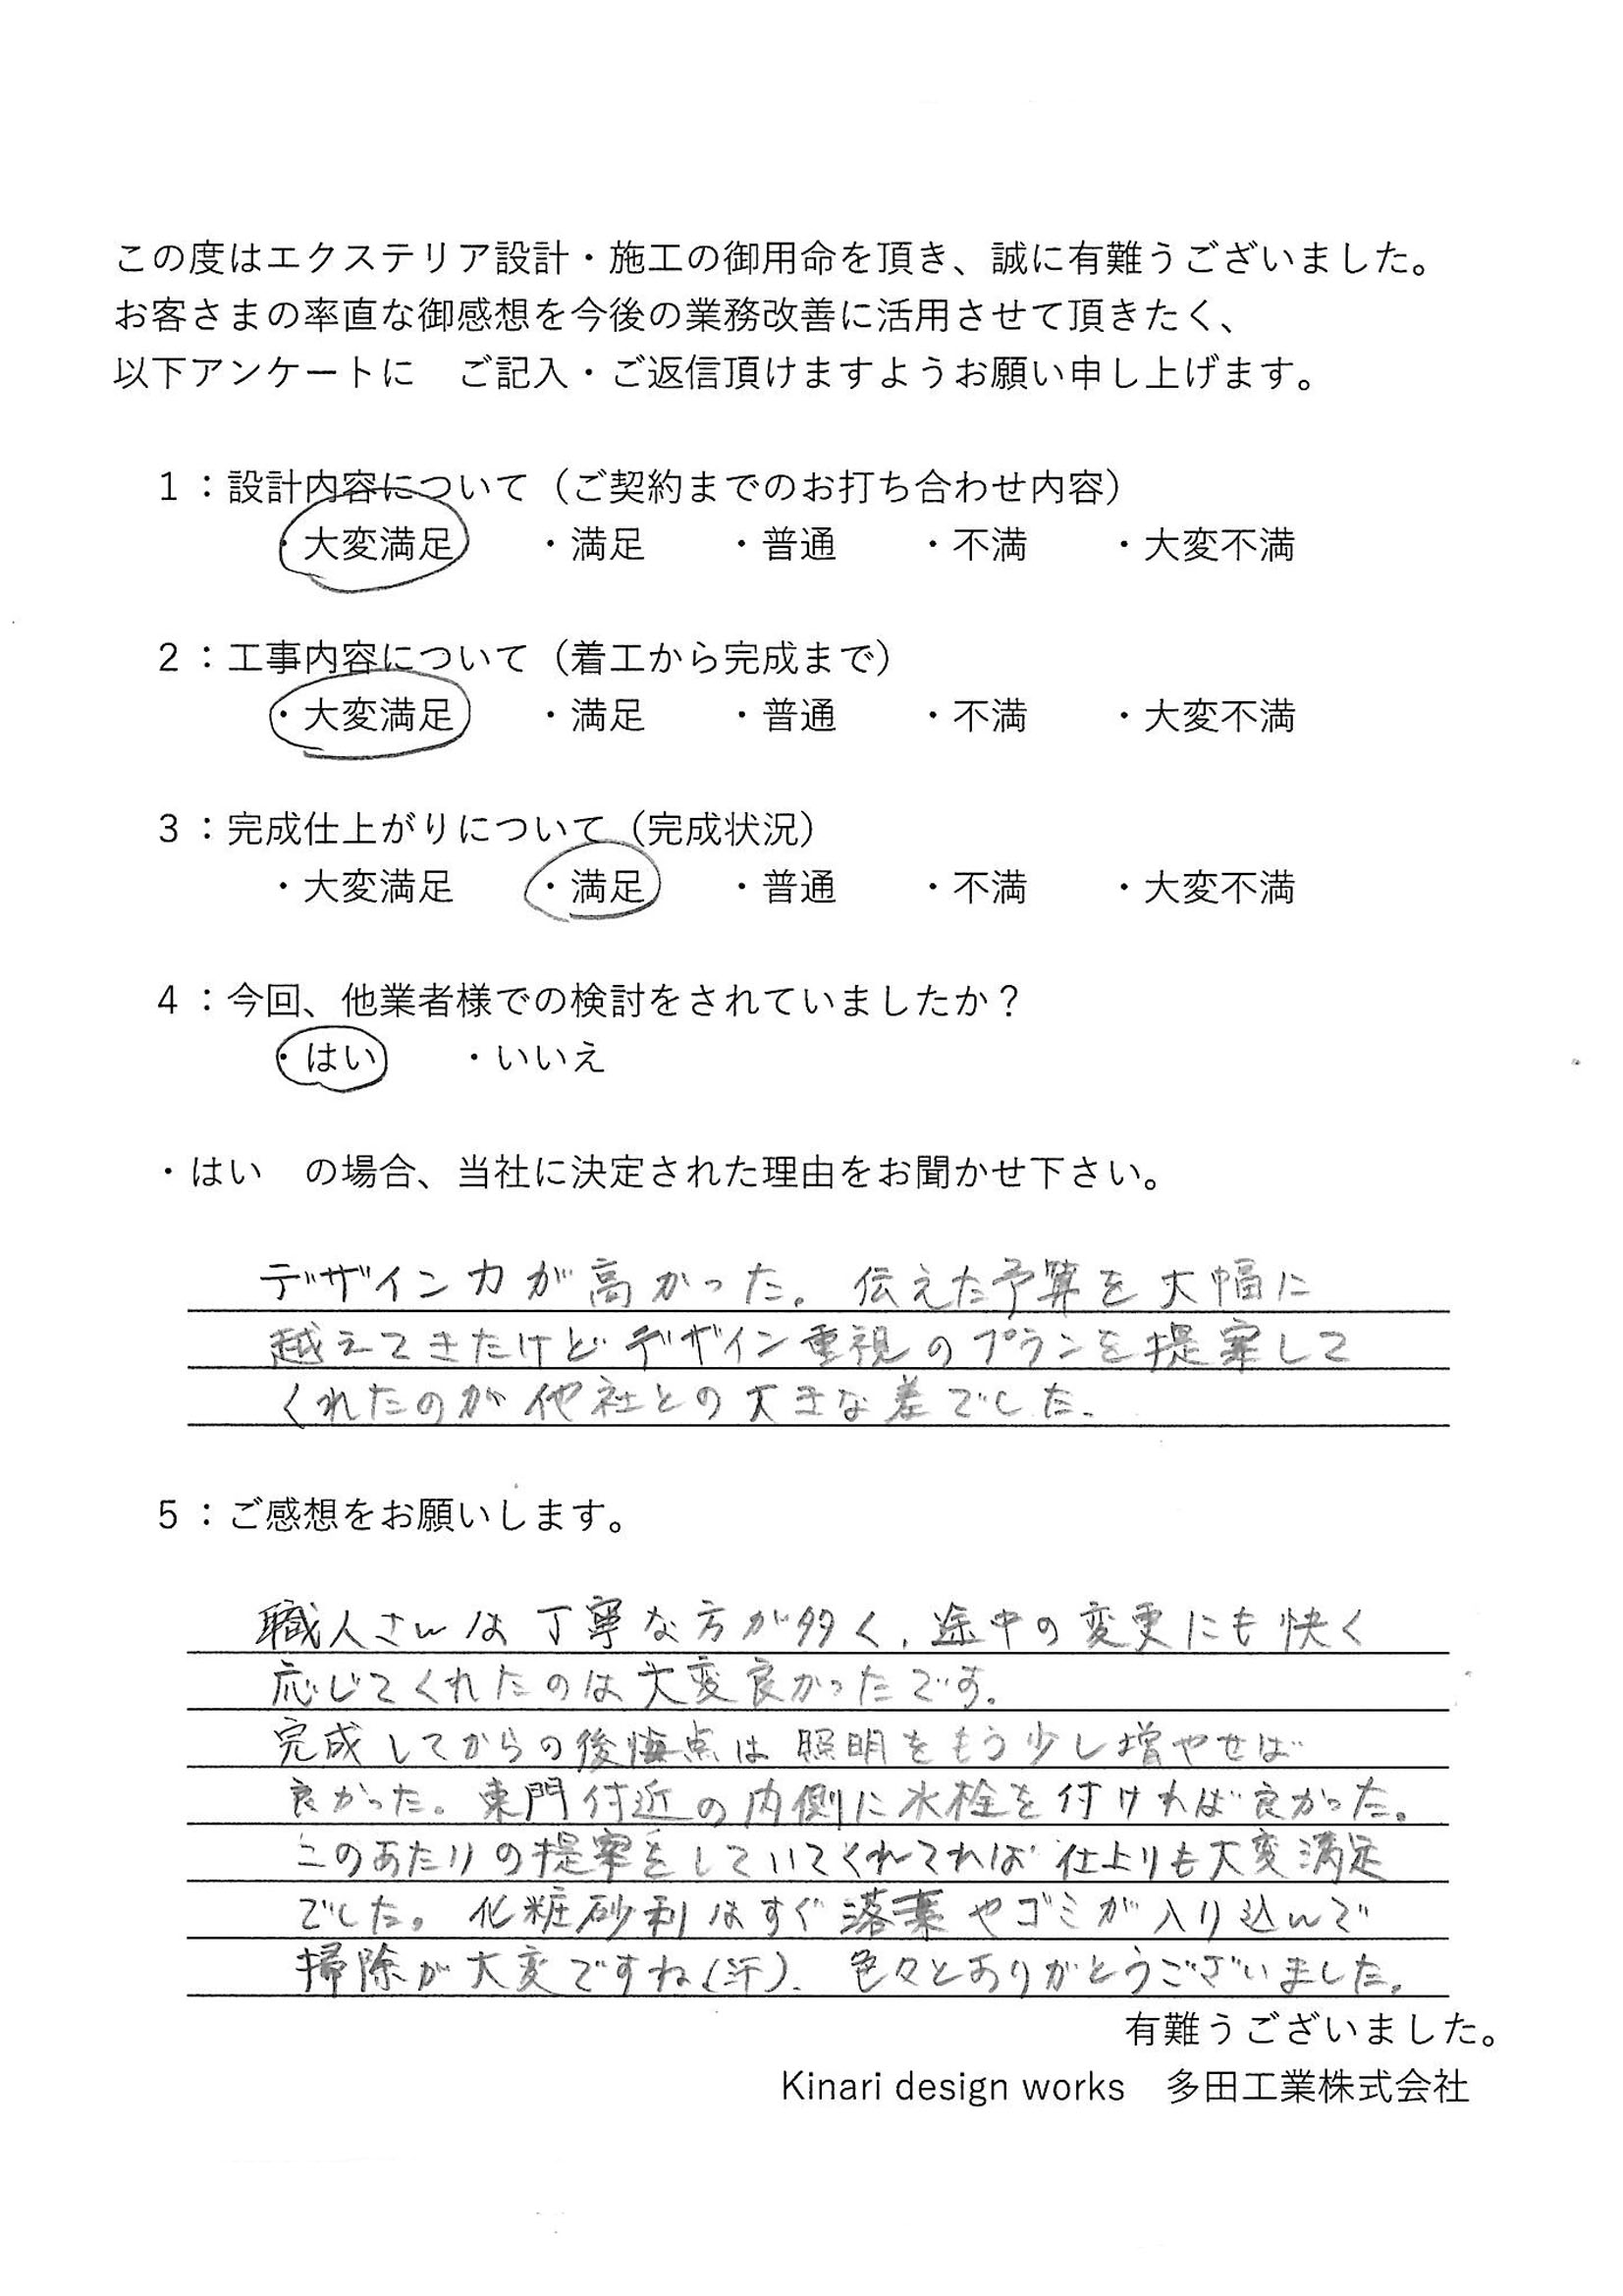 この度はエクステリア設計・施工の御用命を頂き、誠に有難うございました。
お客さまの率直な御感想を今後の業務改善に活用させて頂きたく、
以下アンケートに　ご記入・ご返信頂けますようお願い申し上げます。
1：設計内容について（ご契約までのお打ち合わせ内容）
・大変満足　・満足　・普通　・不満　・大変不満
2：工事内容について（着工から完成まで）
・大変満足　・満足　・普通　・不満　・大変不満
3：完成仕上がりについて（完成状況）
・大変満足　・満足　・普通　・不満　・大変不満
4：今回、他業者様での検討をされていましたか？
・はい　・いいえ
・はい　の場合、当社に決定された理由をお聞かせ下さい。
デザイン力が高かった。伝えた予算を大幅に
越えてきたけどデザイン重視のプランを提案して
くれたのが他社との大きな差でした。
5：ご感想をお願いします。
職人さんは丁寧な方が多く、途中の変更にも快く
応じてくれたのは大変良かったです。
完成してからの後悔点は照明をもう少し増やせば
良かった。東門付近の内側に水栓を付ければ良かった。
このあたりの提案をしていてくれてれば仕上りも大変満足
でした。化粧砂利はすぐ落葉やゴミが入り込んで
掃除が大変ですね(汗)。色々とありがとうございました。
有難うございました。
Kinari design works　多田工業株式会社